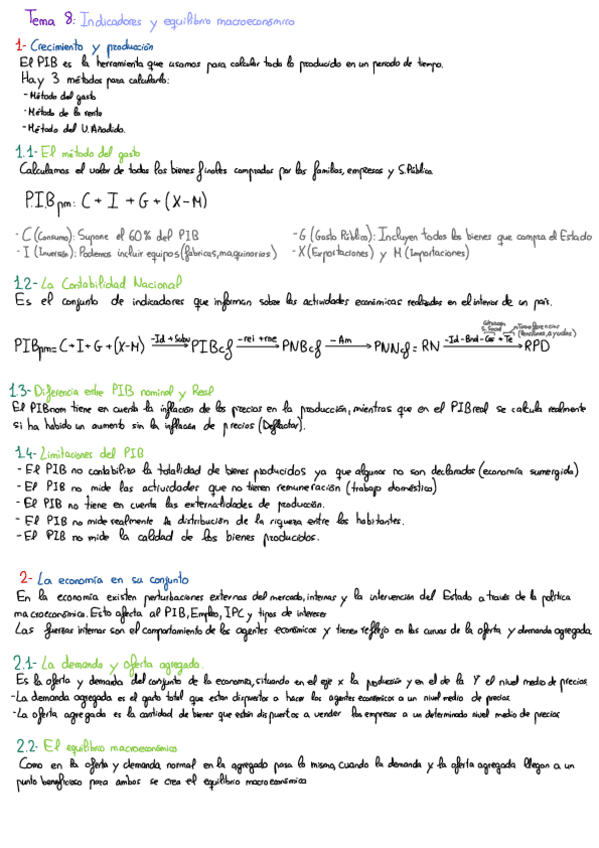 Tema 8: Indicadores y equilibrio macroeconómico
1- Crecimiento y producción
El PIB es la herramienta que usamos para calcular todo lo producido en un periodo de tiempo.
Hay 3 métodos para calcularlo:
- Método del gasto
- Método de la renta
- Método del V. Añadido.
1.1- El método del gasto
Calculamos el valor de todos los bienes finales comprados por las familias, empresas y S. Público.
P.I.B pm: C + I + G + (X-M)
- C (Consumo): Supone el 60% del PIB
- G (Gasto Público): Incluyen todos los bienes que compra el Estado
- I (Inversión): Podemos incluir equipos (fábricas, maquinarias)
- X (Exportaciones) y M (Importaciones)
1.2- La Contabilidad Nacional
Es el conjunto de indicadores que informan sobre las actividades económicas realizadas en el interior de un país.
PIBpm = C + I + G + (X-M) -Id + Subv → PIBcf -rei + rne → PNBcf - Am → PNNcf = RN -Id - Bnd - Css + Te → RPD
Transferencias
1.3- Diferencia entre PIB nominal y Real
El PIBnom tiene en cuenta la inflación de los precios en la producción, mientras que en el PIBreal se calcula realmente
si ha habido un aumento sin la inflación de precios (Deflactor).
1.4- Limitaciones del PIB
- El PIB no contabiliza la totalidad de bienes producidos ya que algunos no son declarados (economía sumergida)
- El PIB no mide las actividades que no tienen remuneración (trabajo doméstico)
- El PIB no tiene en cuenta las externalidades de producción.
- El PIB no mide realmente la distribución de la riqueza entre los habitantes.
- El PIB no mide la calidad de los bienes producidos.
2- La economía en su conjunto
En la economía existen perturbaciones externas del mercado, internas y la intervención del Estado a través de la política
macroeconómica. Esto afecta al PIB, Empleo, IPC y tipos de interes
Las fuerzas internas son el comportamiento de los agentes económicos y tienen reflejo en las curvas de la oferta y demanda agregada.
2.1- La demanda y oferta agregada.
Es la oferta y demanda del conjunto de la economía, situando en el eje x la producción y en el de la Y el nivel medio de precios.
- La demanda agregada es el gasto total que estan dispuestos a hacer los agentes económicos a un nivel medio de precios
- La oferta agregada es la cantidad de bienes que están dispuestos a vender las empresas a un determinado nivel medio de precios
2.2- El equilibrio macroeconómico
Como en la oferta y demanda normal en la agregada pasa lo mismo, cuando la demanda y la oferta agregada llegan a un
punto beneficioso para ambos se crea el equilibrio macroeconómico